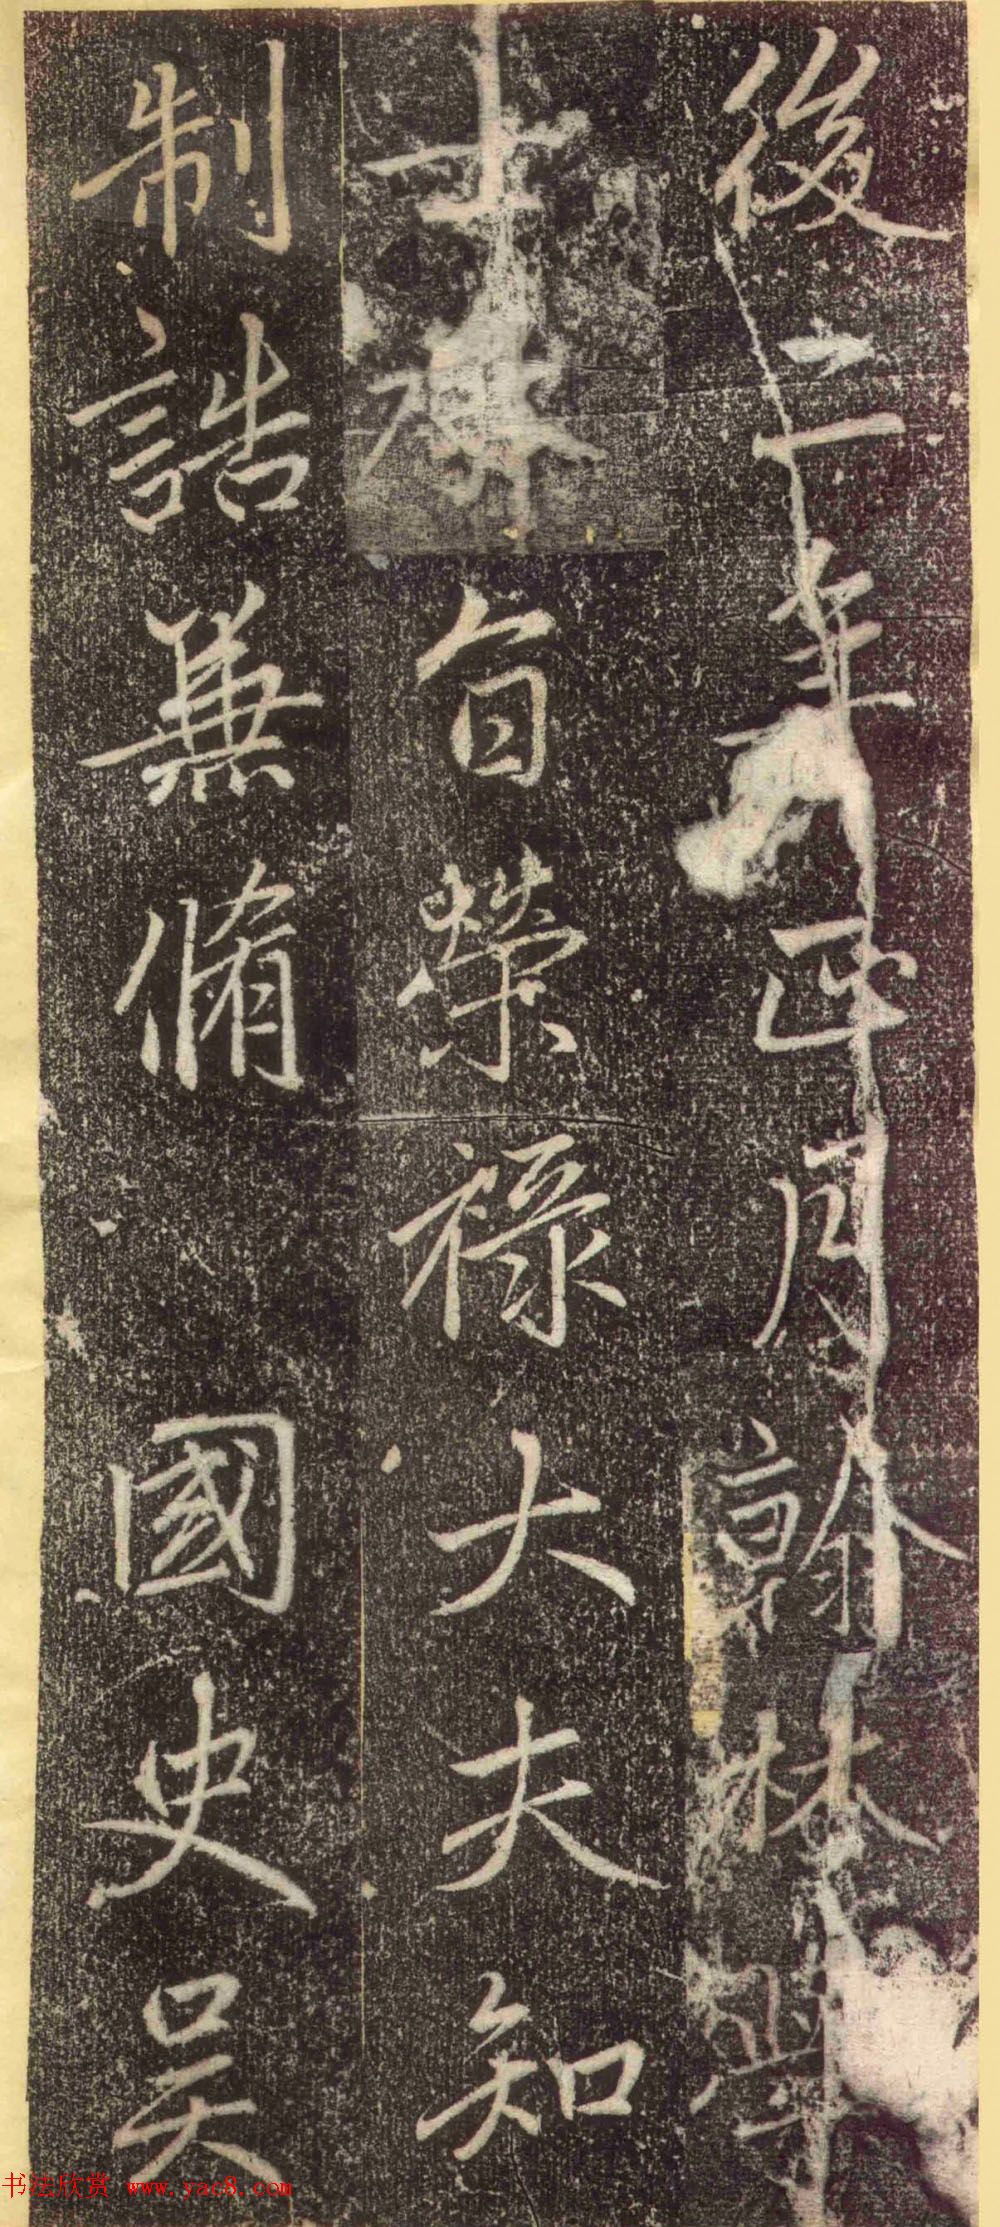 後二年正月翰林學
士承旨榮祿大夫知
制誥兼脩國史吴
书法欣赏 www.yac8.com